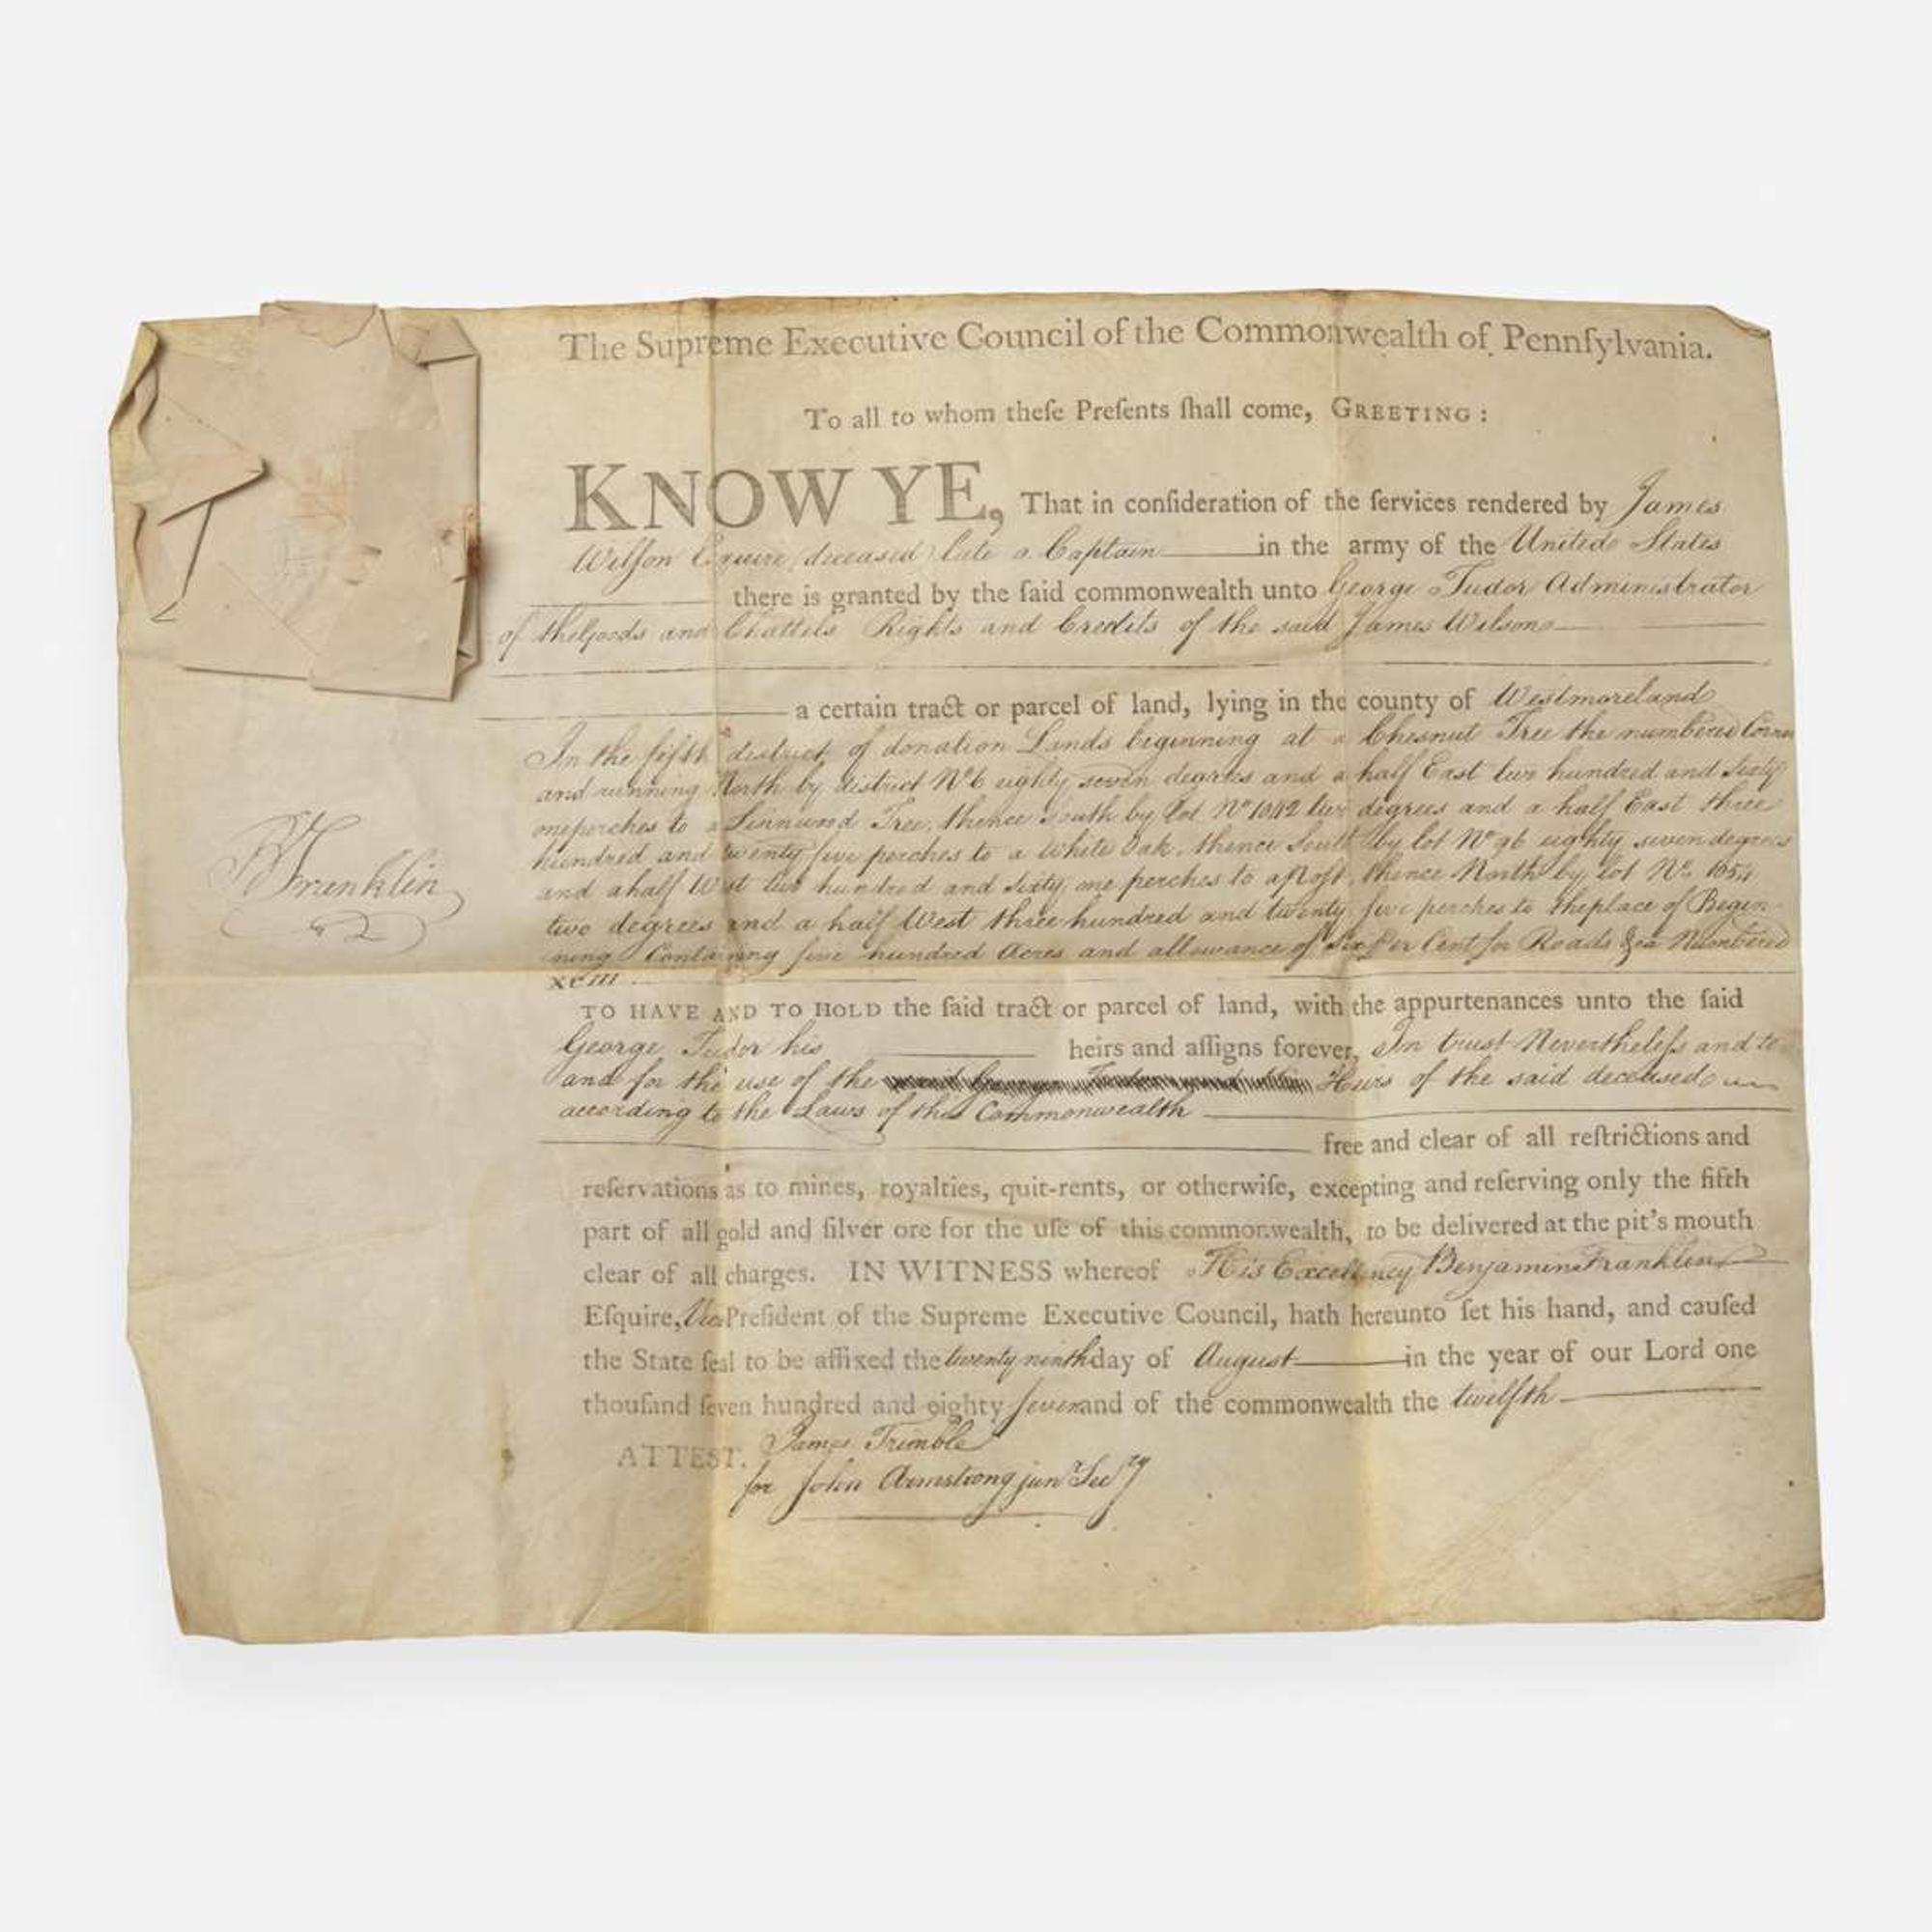 The Supreme Executive Council of the Commonwealth of Pennſylvania.
To all to whom theſe Preſents ſhall come, GREETING:
KNOW YE, That in conſideration of the ſervices rendered by James
Wilſon Esquire deceased late a Captain in the army of the United States
there is granted by the ſaid commonwealth unto George Tudor Administrator
of the Goods and Chattels Rights and Credits of the said James Wilson
a certain tract or parcel of land, lying in the county of Westmoreland
In the fifth district of donation Lands beginning at a Chesnut Tree the numbered Corner
and running North by district No 6 eighty seven degrees and a half East two hundred and Sixty
one perches to a Linnwood Tree, thence South by lot No 1042 two degrees and a half East three
hundred and twenty five perches to a White Oak, thence South by lot No 96 eighty seven degrees
and a half West two hundred and Sixty one perches to a Post, thence North by lot No. 1054
two degrees and a half West three hundred and twenty five perches to the place of Begin
ning Containing five hundred Acres and allowance of Six Per Cent for Roads &ca Numbered
XCIII
TO HAVE AND TO HOLD the ſaid tract or parcel of land, with the appurtenances unto the ſaid
George Tudor his heirs and aſſigns forever, In trust Nevertheleſs and to
and for the use of the Heirs of the said deceased
according to the Laws of this Commonwealth
free and clear of all reſtrictions and
reſervations as to mines, royalties, quit-rents, or otherwiſe, excepting and reſerving only the fifth
part of all gold and ſilver ore for the uſe of this commonwealth, to be delivered at the pit's mouth
clear of all charges. IN WITNESS whereof His Excellency Benjamin Franklin
Eſquire, Preſident of the Supreme Executive Council, hath hereunto ſet his hand, and cauſed
the State ſeal to be affixed the twenty ninth day of August in the year of our Lord one
thouſand ſeven hundred and eighty seven and of the commonwealth the twelfth
ATTEST. James Trimble
for John Armstrong junr Secry
B Franklin